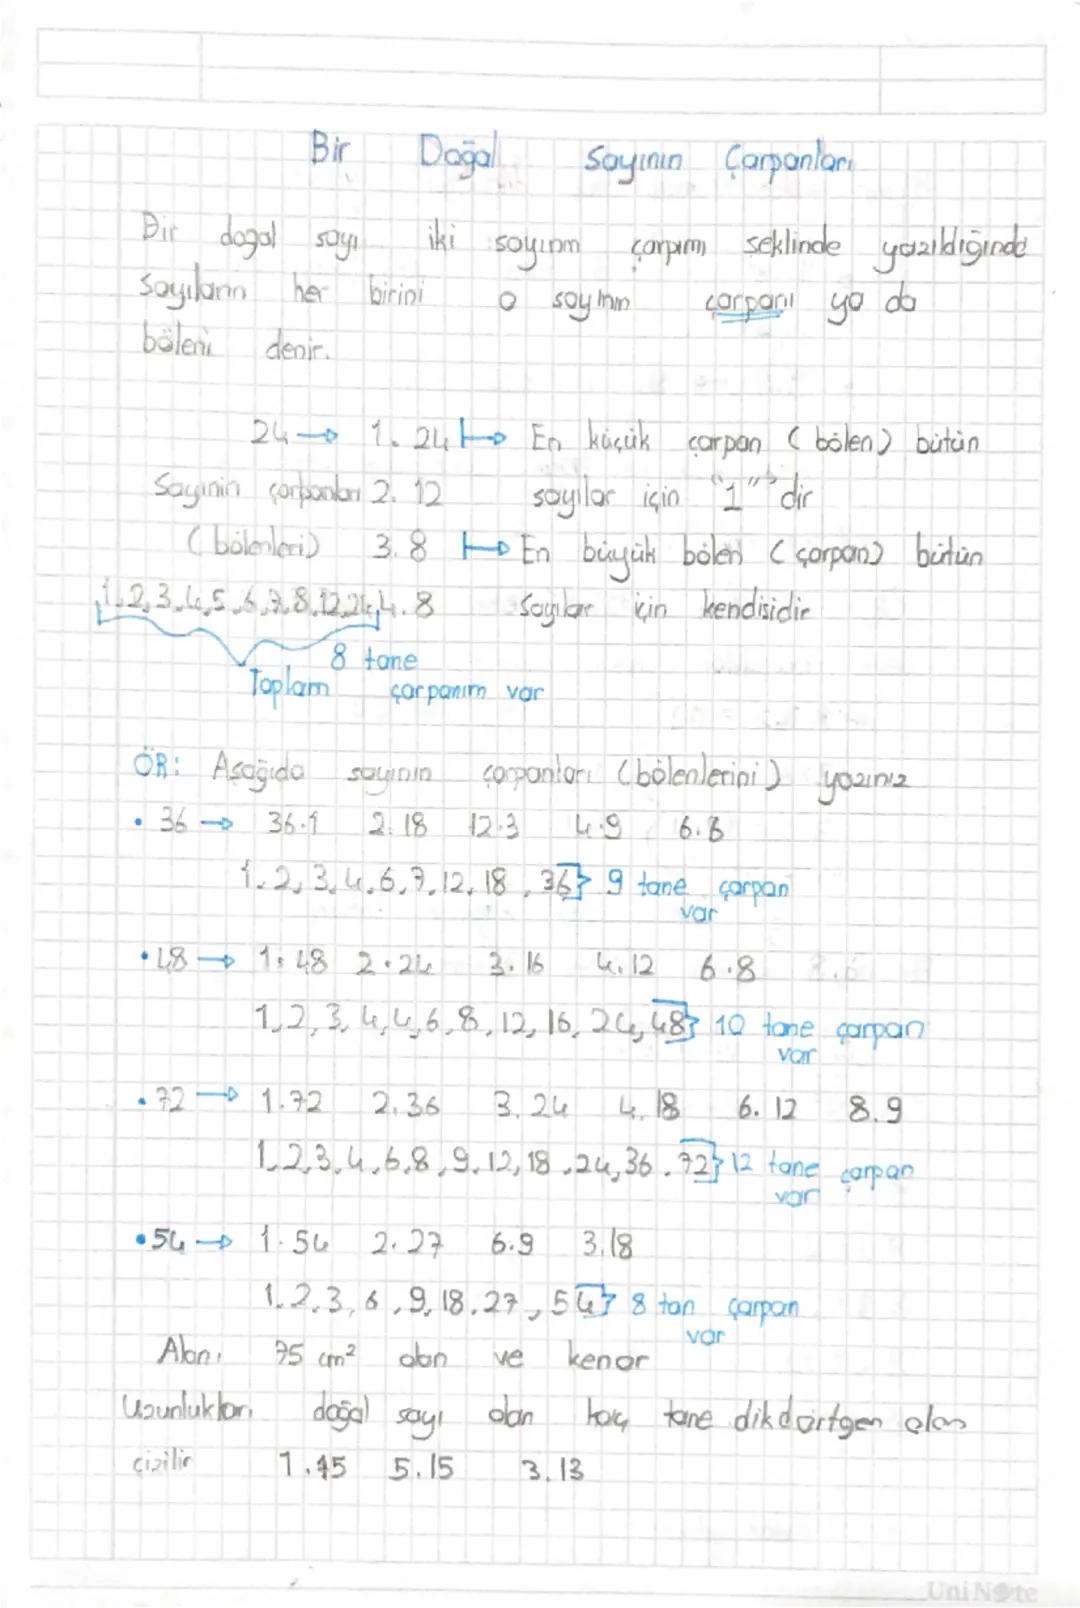 Bir Doğal Sayının Çarpanları
Bir dogal sayı iki sayının çarpımı seklinde yazıldığında
Sayıların her birini o sayının çarpanı ya da
böleni denir.
24 → 1. 24 → En küçük çarpan (bölen) bütün
Sayının çarpanları 2. 12 sayılar için "1" dir
(bölenleri) 3. 8 → En büyük bölen (çarpan) bütün
1,2,3,4,5,6,7,8,12,24 4. 8 Sayılar için kendisidir
8 tane
Toplam çarpanım var
ÖR: Asağıda sayının çarpanları (bölenlerini) yazınız
• 36 → 36.1 2. 18 12.3 4.9 6.6
1, 2, 3, 4, 6, 9, 12, 18, 36} 9 tane çarpan
var
• 48 → 1. 48 2. 24 3. 16 4. 12 6.8
1, 2, 3, 4, 4, 6, 8, 12, 16, 24, 48} 10 tane çarpan
var
• 72 → 1.72 2.36 3. 24 4. 18 6. 12 8.9
1, 2, 3, 4, 6, 8, 9, 12, 18, 24, 36, 72} 12 tane çarpan
var
• 54 → 1. 54 2. 27 6.9 3.18
1, 2, 3, 6, 9, 18, 27, 54} 8 tan çarpan
var
Alanı 75 cm² olan ve kenar
Uzunlukları doğal sayı olan kaç tane dikdörtgen alan
çizilir 1. 45 5. 15 3. 13
UniNote